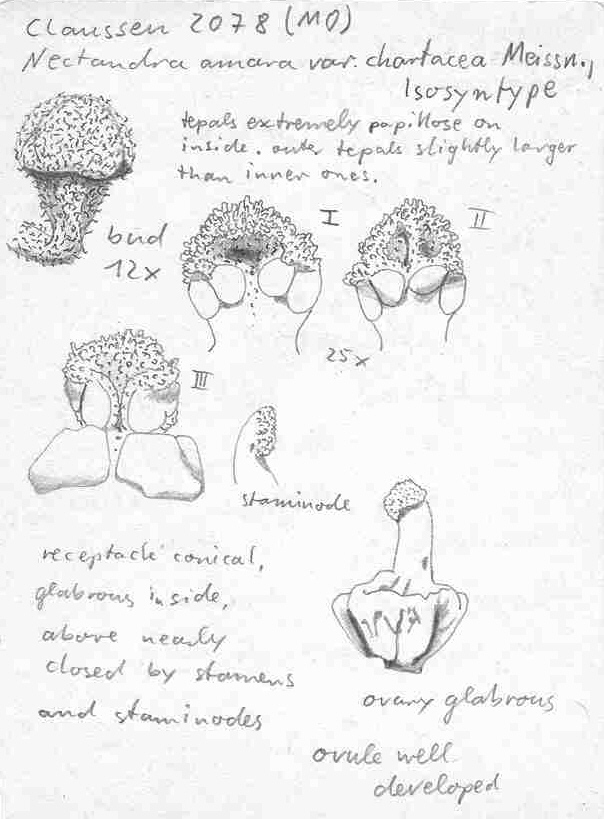 Claussen 2078 (MO)
Nectandra amara var. chartacea Meissn.,
Isosyntype
tepals extremely papillose on
inside. outer tepals slightly larger
than inner ones.
bud
12x
I
II
25x
III
staminode
receptacle conical,
glabrous inside,
above nearly
closed by stamens
and staminodes
ovary glabrous
ovule well
developed